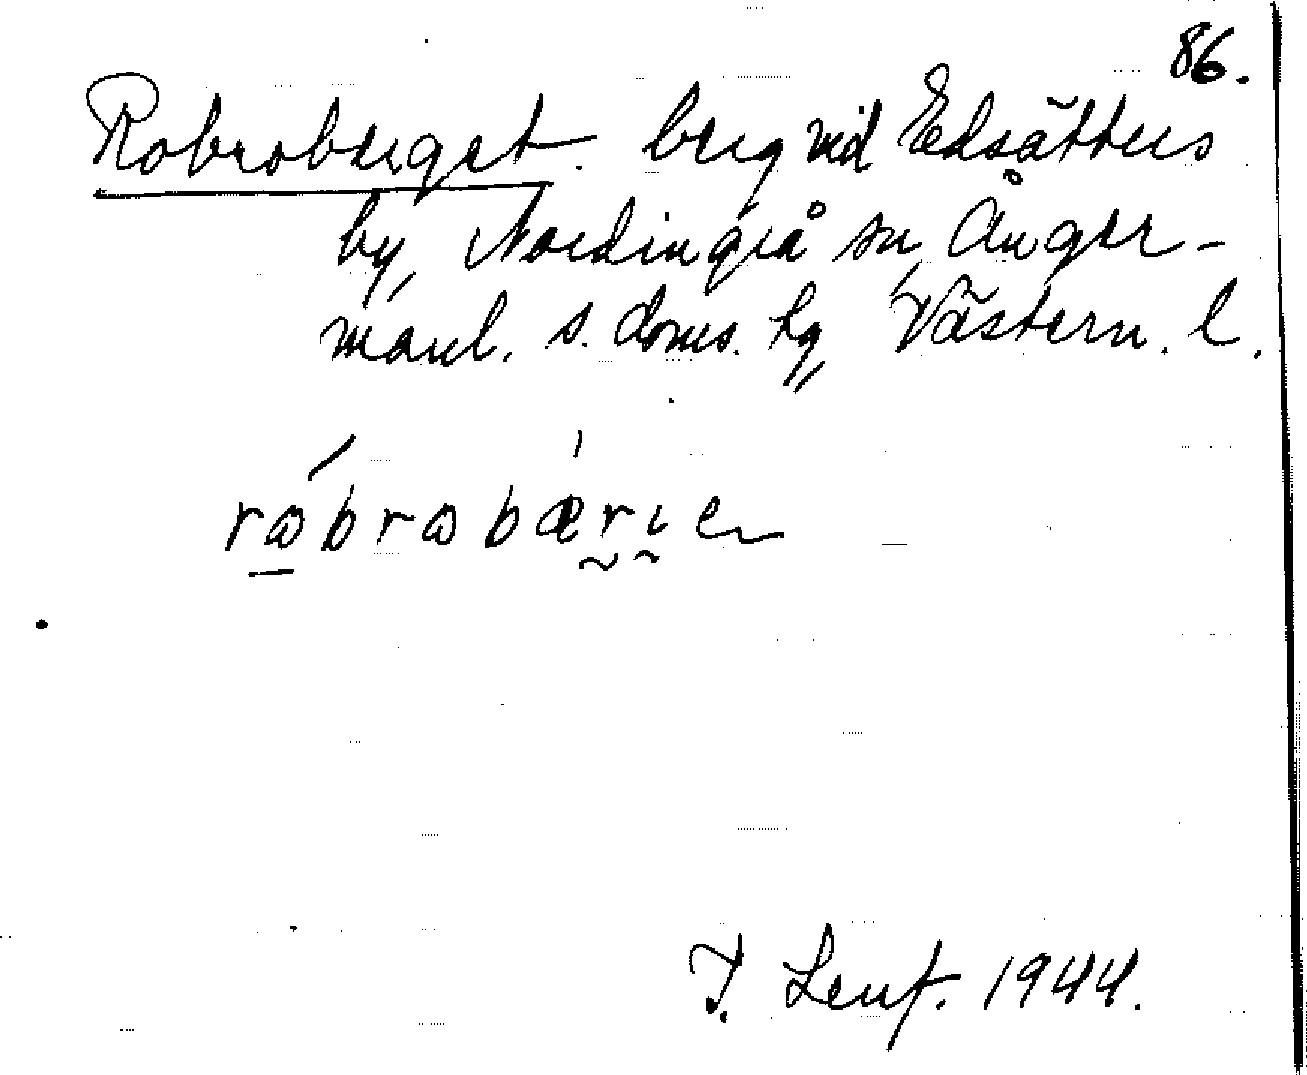 86.
Robroberget. berg vid Edsätters
by, Nordingrå sn, Ånger-
manl. s. doms. hg, Västern. l.
rɷbrɷbæriɛ
J. Lenf. 1944.